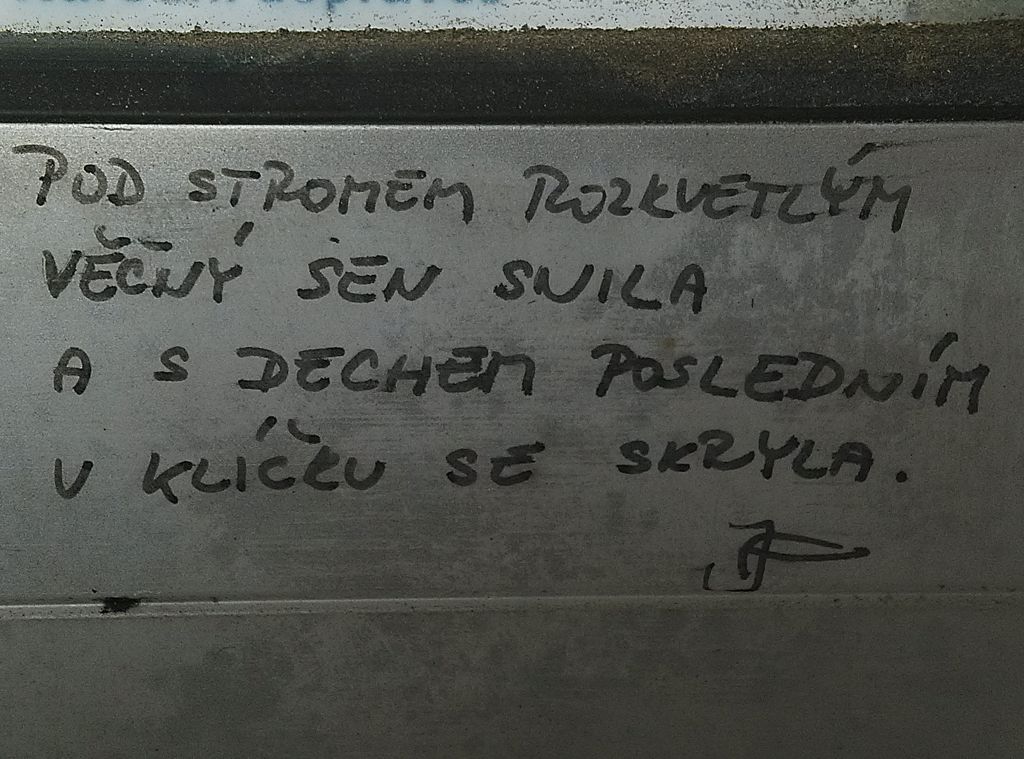 POD STROMEM ROZKVETLÝM
VĚČNÝ SEN SNILA
A S DECHEM POSLEDNÍM
V KLÍČKU SE SKRYLA.